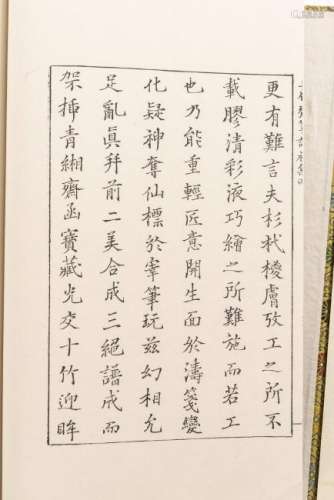 更有難言夫杉杙椶膚攷工之所不
載膠清彩液巧繪之所難施而若工
也乃能重輕匠意開生面於濤箋變
化疑神奪仙標於宰筆玩茲幻相允
足亂眞幷前二美合成三絕譜成而
架插青緗齊函寶藏光交十竹迎眸